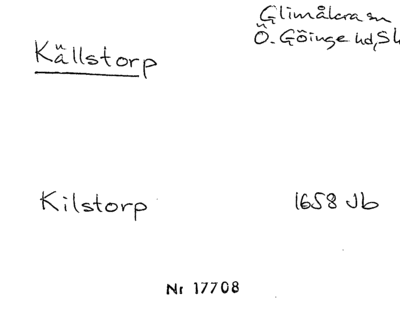 Glimåkra sn
Källstorp
Ö. Göinge hd, Sk
Kilstorp 1658 Jb
Nr 17708